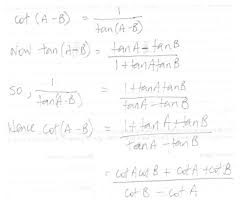 cot (A-B) = 1 / tan(A-B)
Now tan(A-B) = tanA - tanB / 1 + tanA tanB
So, 1 / tan(A-B) = 1 + tanA tanB / tanA - tanB
Hence cot(A-B) = 1 + tanA + tanB / tanA - tanB
= cotA cotB + cotA + cotB / cotB - cotA